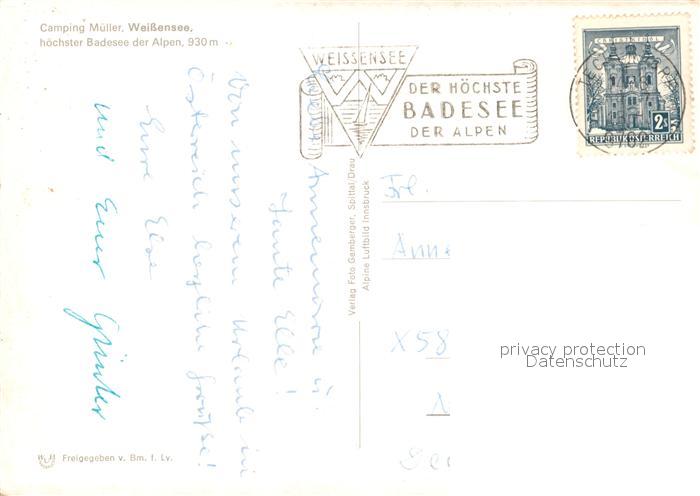 Camping Müller, Weißensee,
höchster Badesee der Alpen, 930 m
WEISSENSEE
DER HÖCHSTE
BADESEE
DER ALPEN
CHRISTKINDL
2S
REPUBLIK ÖSTERREICH
Annemarie u.
Tante Elle!
Von unserem Urlaub in
Österreich herzliche Grüße!
Eure Else
und Euer Günter
Verlag Foto Gamberger, Spittal/Drau
Alpine Luftbild Innsbruck
Frl.
Änne
X58
privacy protection
Datenschutz
Freigegeben v. Bm. f. Lv.